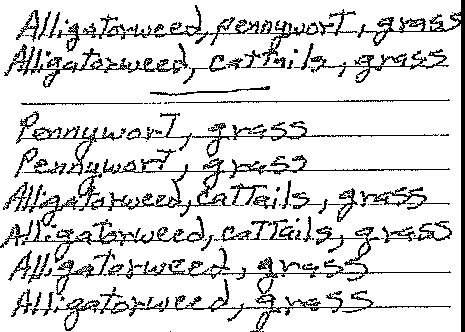 Alligatorweed, pennywort, grass
Alligatorweed, cattails, grass
Pennywort, grass
Pennywort, grass
Alligatorweed, cattails, grass
Alligatorweed, cattails, grass
Alligatorweed, grass
Alligatorweed, grass